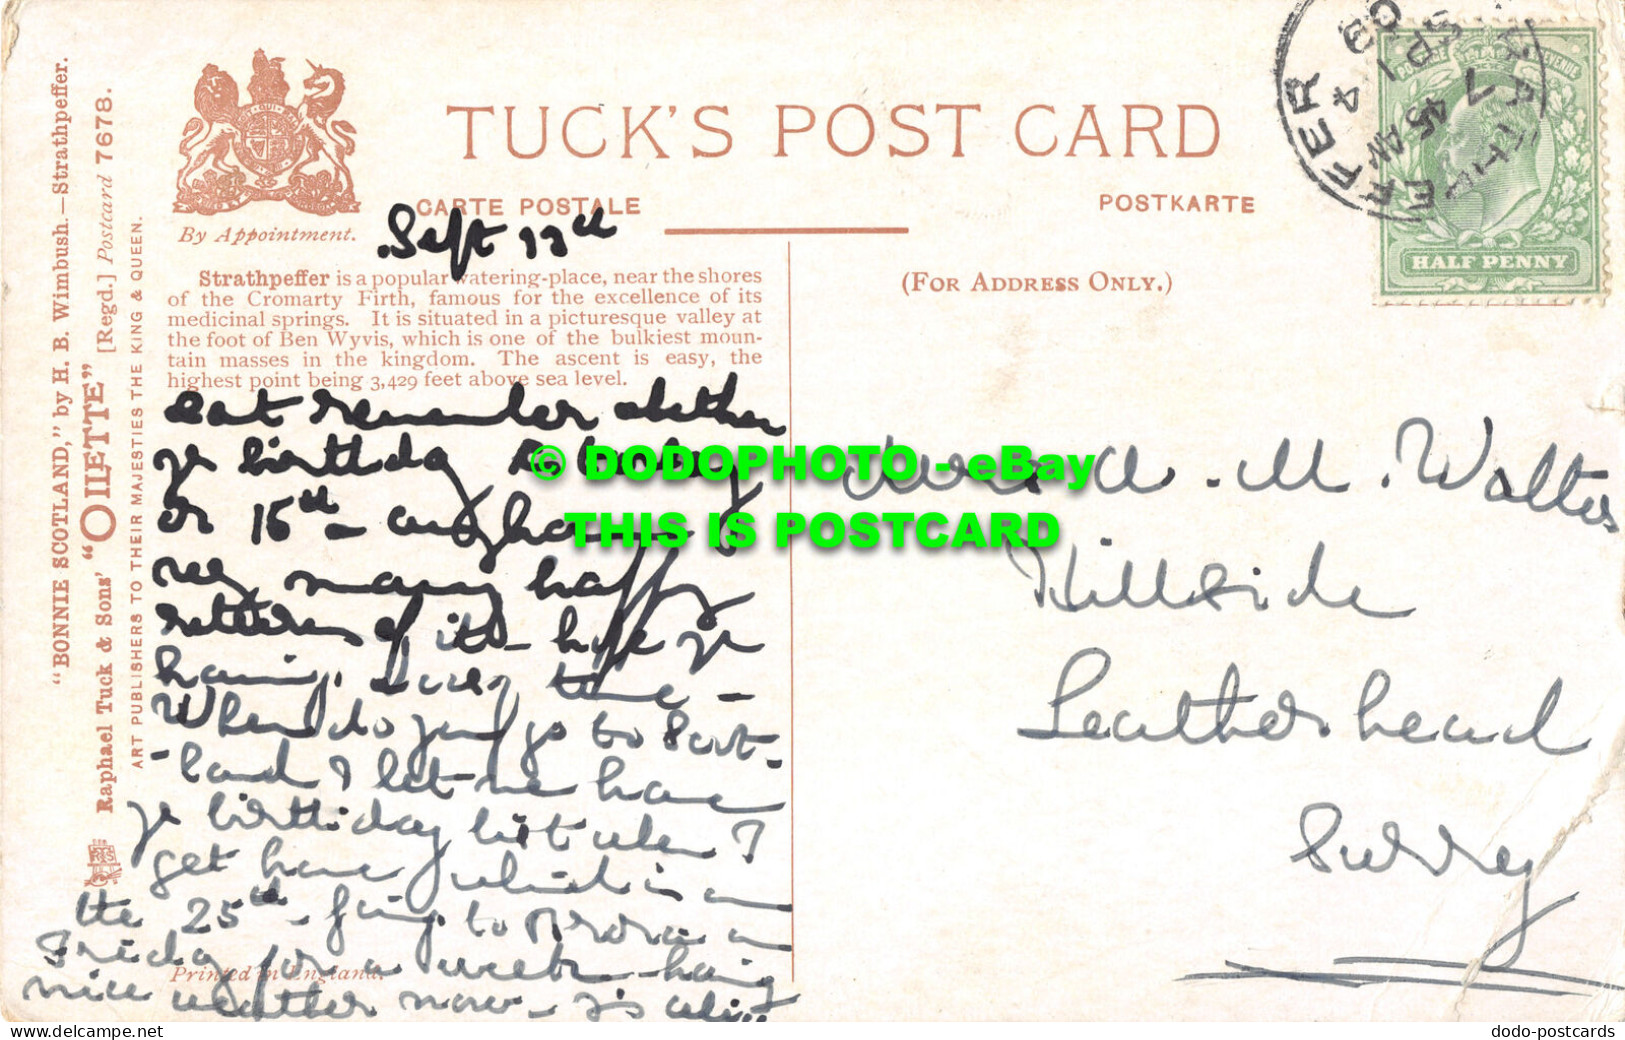 "BONNIE SCOTLAND," by H. B. Wimbush.—Strathpeffer.
Raphael Tuck & Sons' "OILETTE" [Regd.] Postcard 7678.
ART PUBLISHERS TO THEIR MAJESTIES THE KING & QUEEN.
By Appointment.
TUCK'S POST CARD
CARTE POSTALE
POSTKARTE
(FOR ADDRESS ONLY.)
Strathpeffer is a popular watering-place, near the shores
of the Cromarty Firth, famous for the excellence of its
medicinal springs. It is situated in a picturesque valley at
the foot of Ben Wyvis, which is one of the bulkiest moun-
tain masses in the kingdom. The ascent is easy, the
highest point being 3,429 feet above sea level.
Sept 13th
remember whether
yr birthday is today
or 15th - anyhow
very many happy
returns of it - hope yr
having a very time -
When do you go to Scot-
-land? let me have
yr birthday list when I
get home which is on
the 25th - going to on
Friday for a week - having
nice weather now -
Printed in England.
POSTAGE REVENUE
HALF PENNY
7 45 AM
SP 14
03
A. M. Walters
Hillside
Leatherhead
Surrey
© DODOPHOTO - eBay
THIS IS POSTCARD
delcampe.net
dodo-postcards